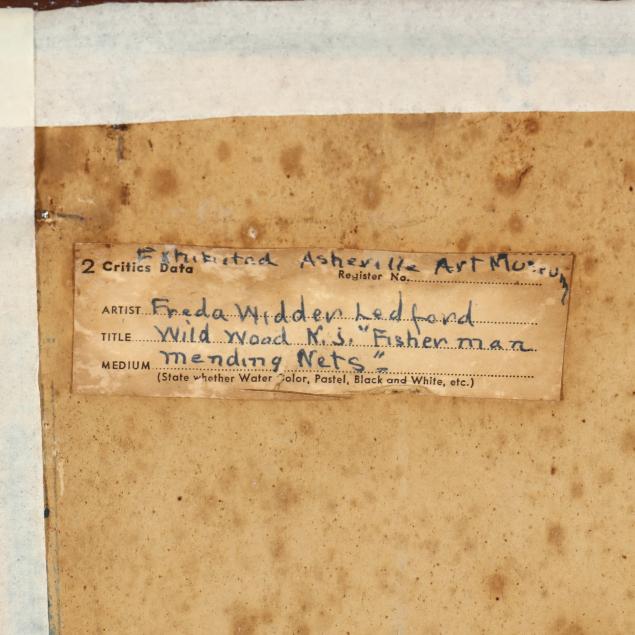 Exhibited Asheville Art Museum
2 Critics Data Register No.
ARTIST Freda Widder Ledford
TITLE Wild Wood N.J. "Fisherman
MEDIUM mending Nets"
(State whether Water Color, Pastel, Black and White, etc.)